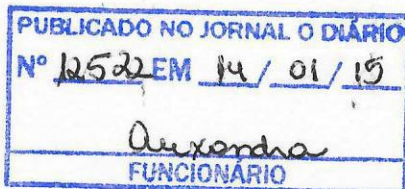 PUBLICADO NO JORNAL O DIÁRIO
Nº 12522 EM 14 / 01 / 15
FUNCIONÁRIO